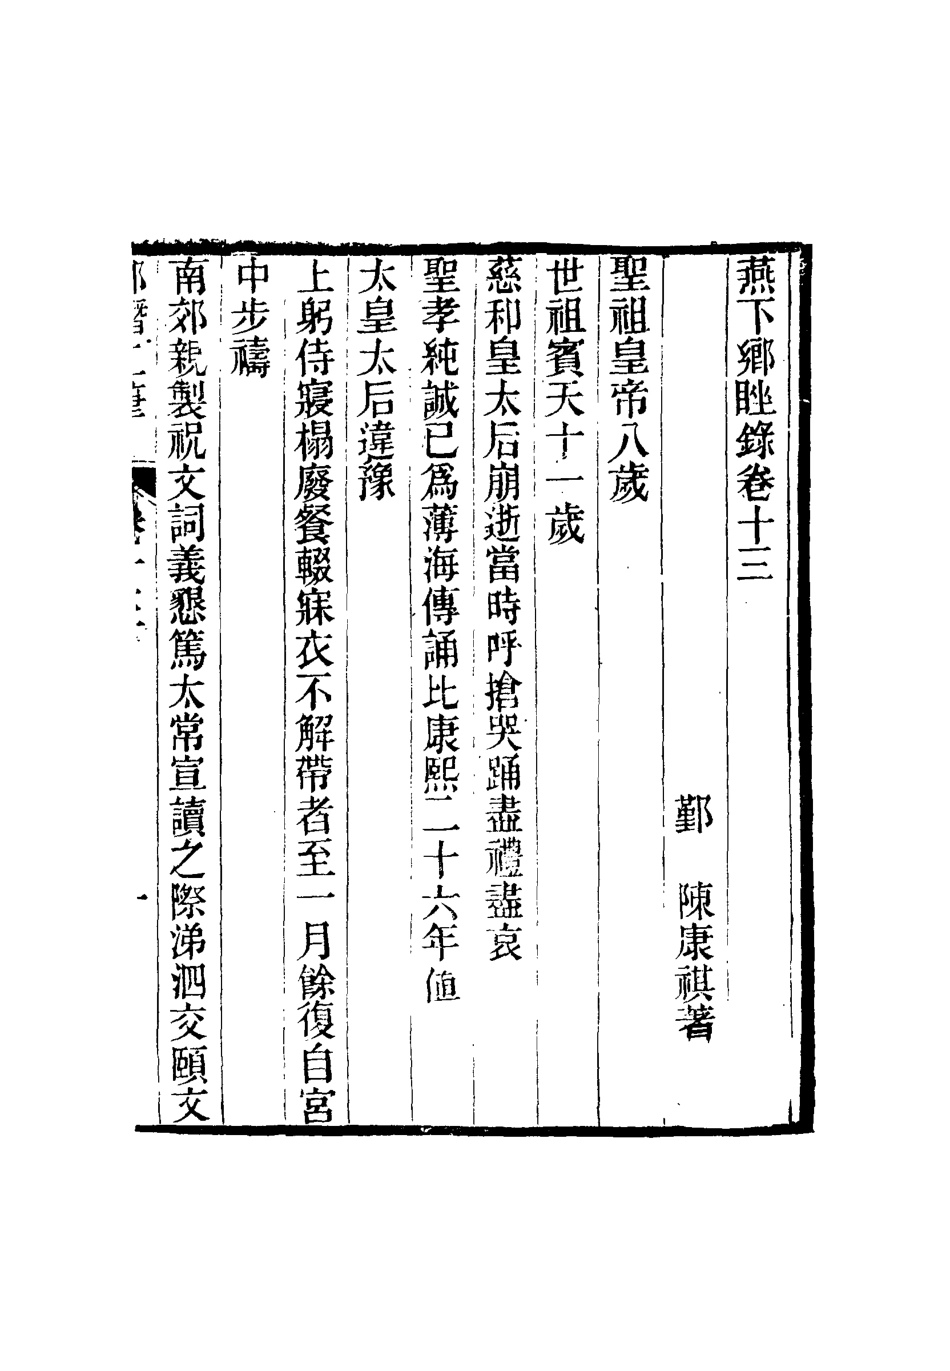 燕下鄉脞錄卷十三
鄞　陳康祺著
聖祖皇帝八歲
世祖賓天十一歲
慈和皇太后崩逝當時呼搶哭踊盡禮盡哀
聖孝純誠已爲薄海傳誦比康熙二十六年値
太皇太后違豫
上躬侍寢榻廢餐輟寐衣不解帶者至一月餘復自宮
中步禱
南郊親製祝文詞義懇篤太常宣讀之際涕泗交頤文
一